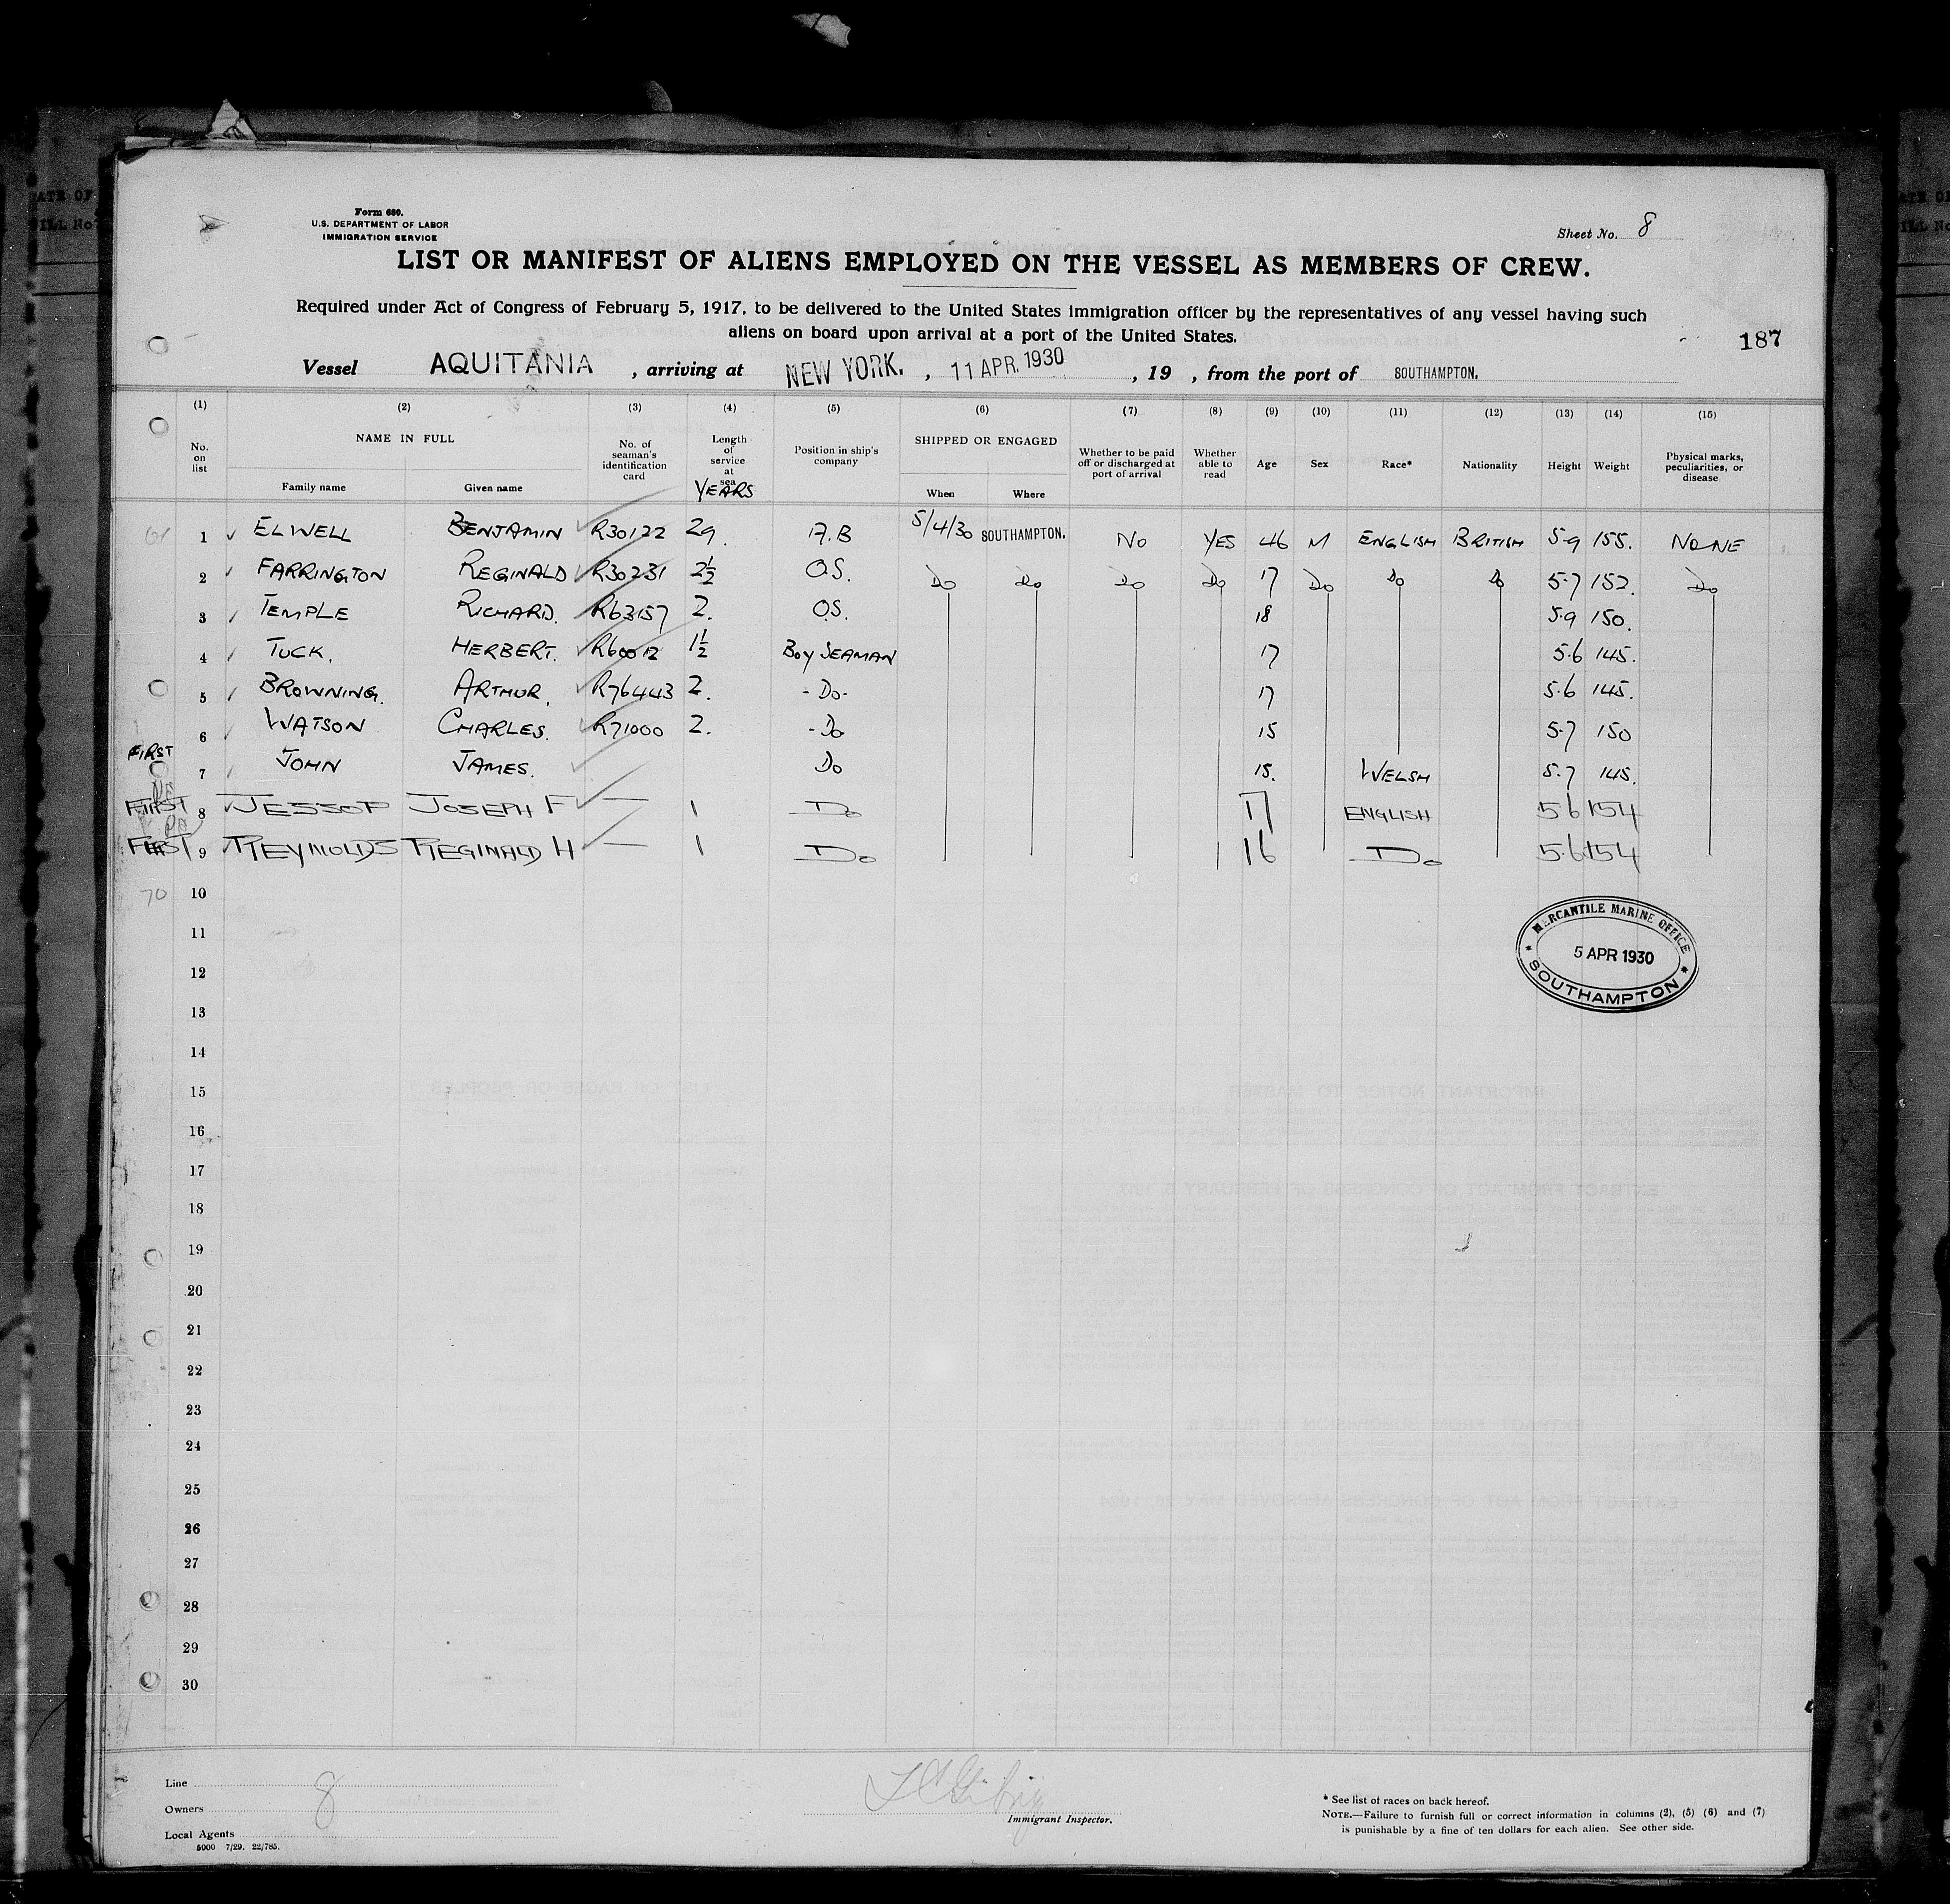 Form 680.
U.S. DEPARTMENT OF LABOR
IMMIGRATION SERVICE
Sheet No. 8
LIST OR MANIFEST OF ALIENS EMPLOYED ON THE VESSEL AS MEMBERS OF CREW.
Required under Act of Congress of February 5, 1917, to be delivered to the United States immigration officer by the representatives of any vessel having such
aliens on board upon arrival at a port of the United States.
187
Vessel AQUITANIA , arriving at NEW YORK. , 11 APR. 1930 , 19 , from the port of SOUTHAMPTON.
(1) (2) (3) (4) (5) (6) (7) (8) (9) (10) (11) (12) (13) (14) (15)
No. on list NAME IN FULL Family name Given name No. of seaman's identification card Length of service at sea YEARS Position in ship's company SHIPPED OR ENGAGED When Where Whether to be paid off or discharged at port of arrival Whether able to read Age Sex Race* Nationality Height Weight Physical marks, peculiarities, or disease
61 1 ELWELL BENJAMIN R30122 29. A.B 5/4/30 SOUTHAMPTON. No YES 46 M ENGLISH BRITISH 5-9 155. NONE
2 FARRINGTON REGINALD R30231 2½ O.S. Do Do Do Do 17 Do Do Do 5-7 152. Do
3 TEMPLE RICHARD. R63157 2. O.S. 18 5-9 150.
4 TUCK. HERBERT. R60012 1½ BOY SEAMAN 17 5.6 145.
5 BROWNING. ARTHUR. R76443 2. - Do - 17 5.6 145.
6 WATSON CHARLES. R71000 2. - Do 15 5-7 150
FIRST 7 JOHN JAMES. Do 15. WELSH 5.7 145.
FIRST 8 JESSOP JOSEPH F — 1 Do 17 ENGLISH 5 6 154
FIRST 9 REYNOLDS REGINALD H — 1 Do 16 Do 5.6 154
70 10
11
MERCANTILE MARINE OFFICE
5 APR 1930
SOUTHAMPTON
12
13
14
15
16
17
18
19
20
21
22
23
24
25
26
27
28
29
30
Line
8
Owners
Local Agents
5000 7/29. 22/785.
Immigrant Inspector.
* See list of races on back hereof.
NOTE.—Failure to furnish full or correct information in columns (2), (5) (6) and (7)
is punishable by a fine of ten dollars for each alien. See other side.